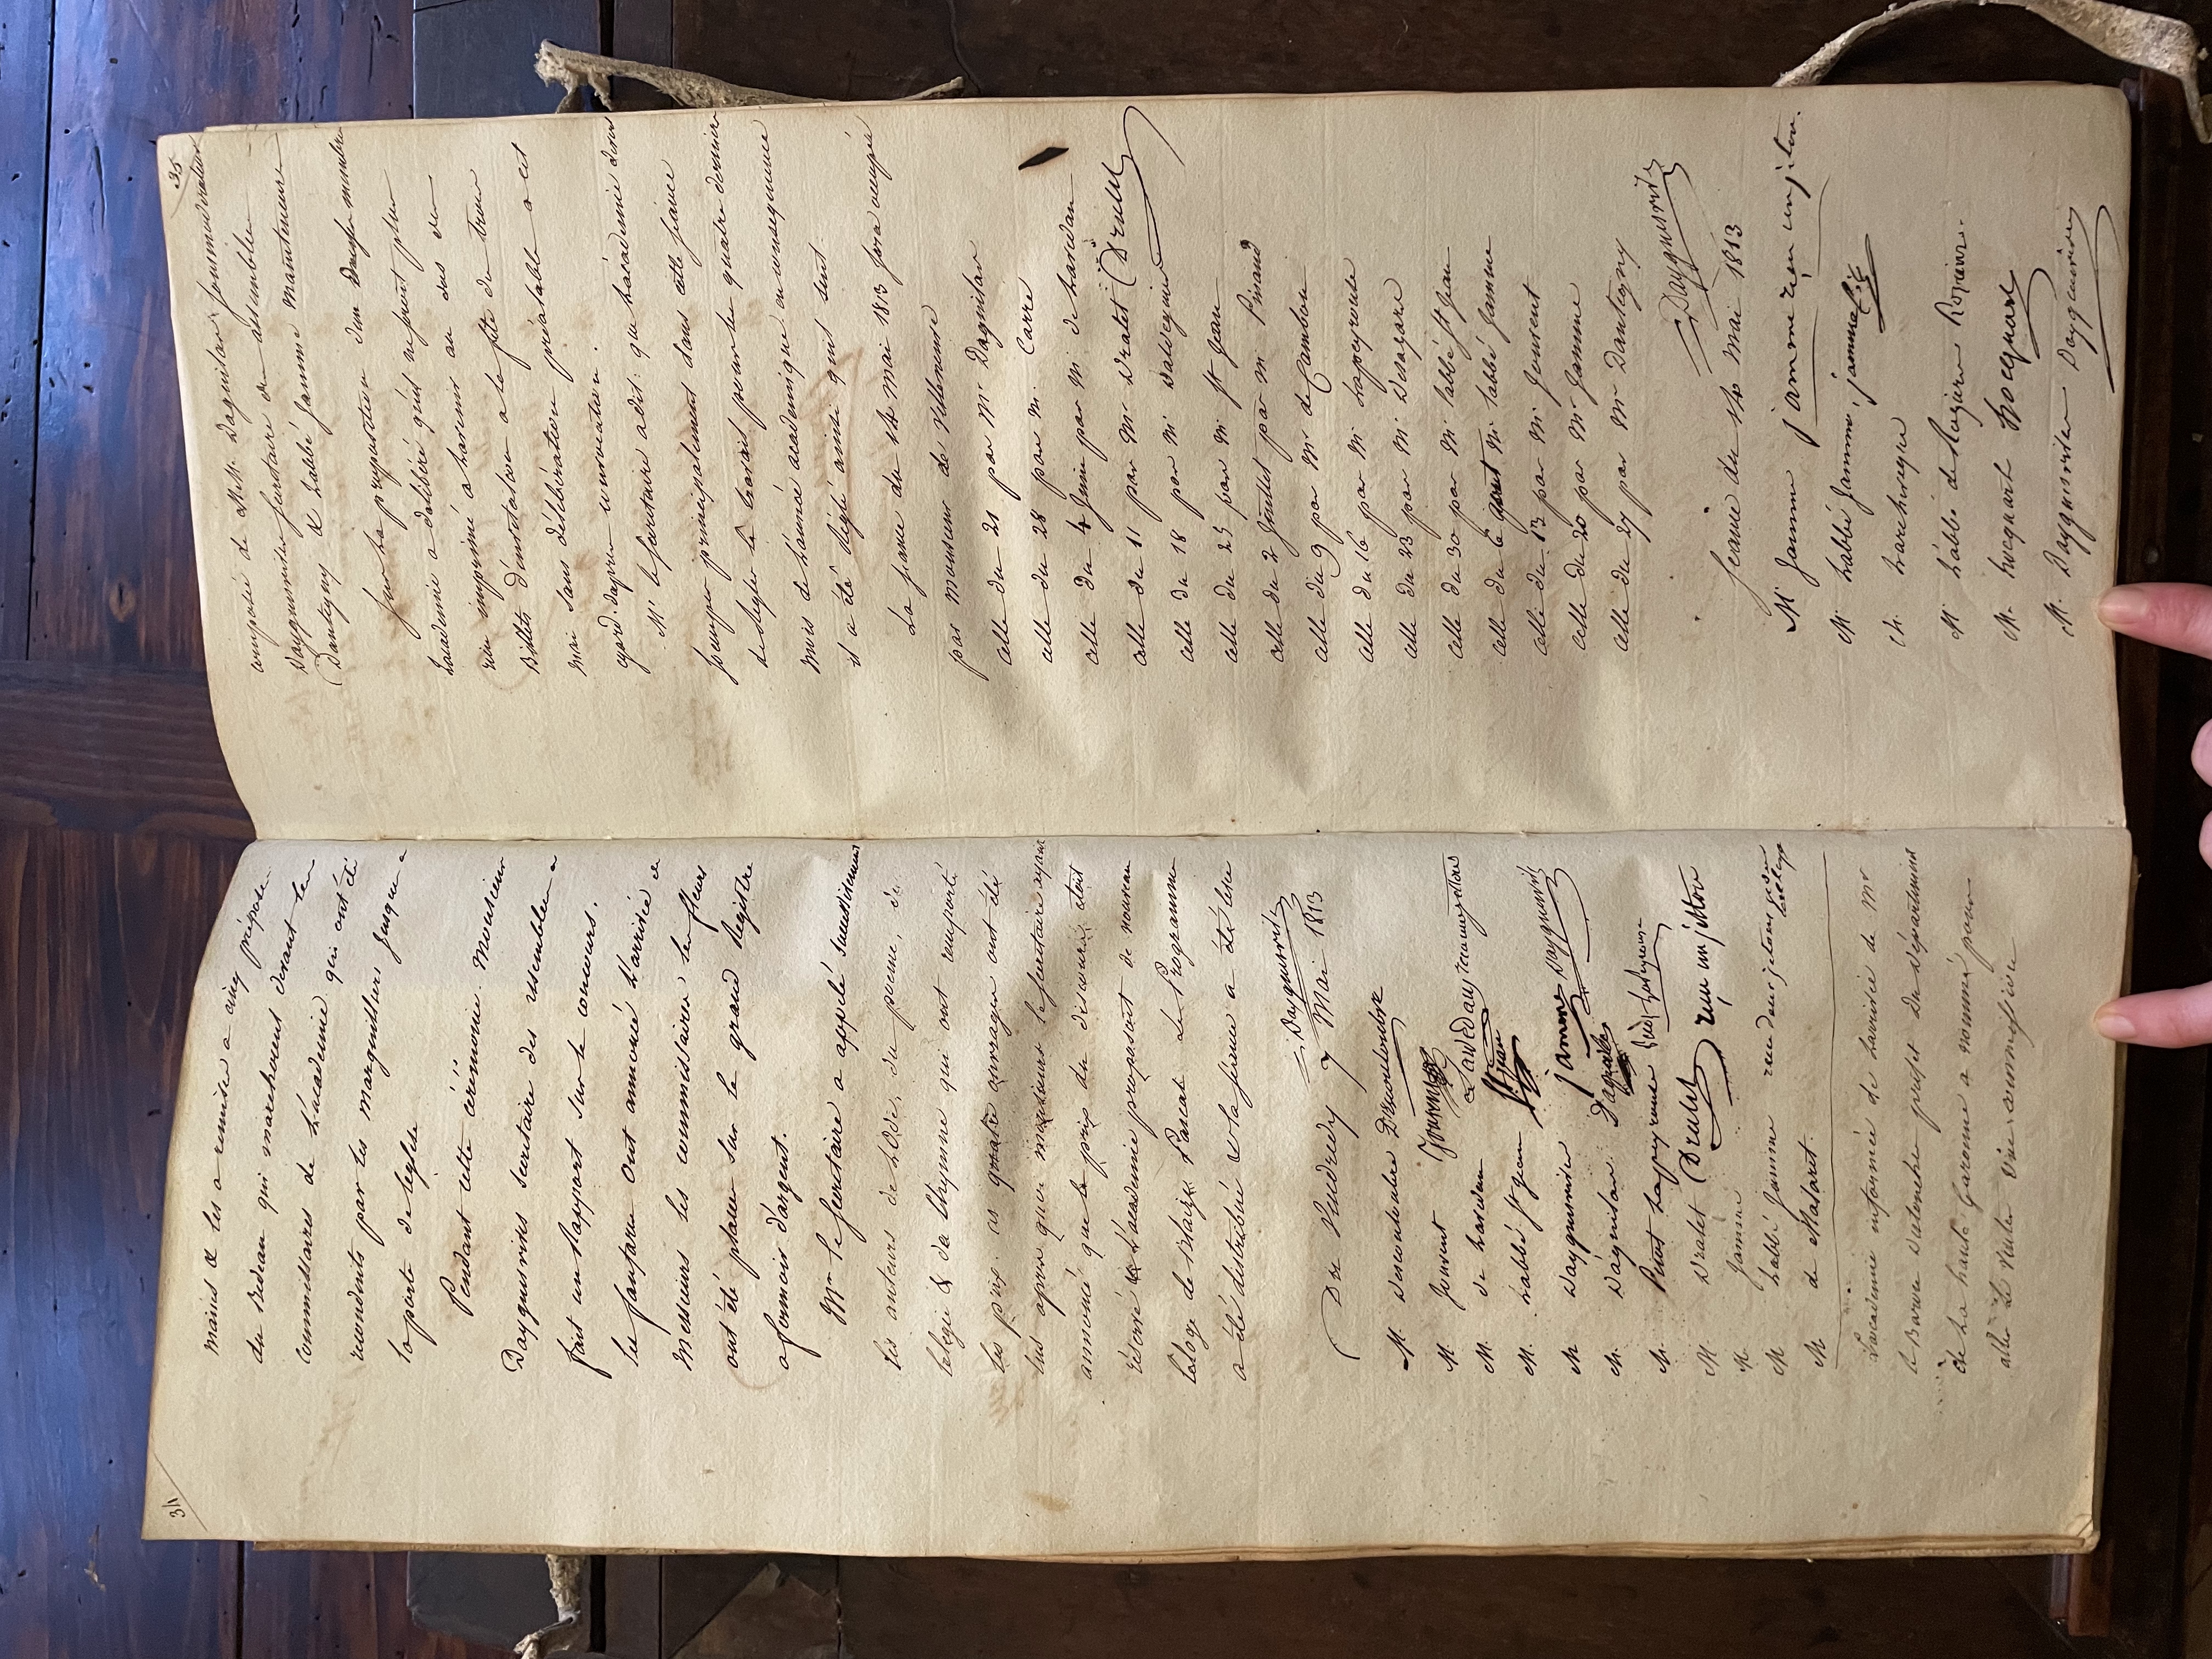 34
mains & les a remises a cinq préposés
du Bedeau qui marchoient devant les
commissaires de L'académie qui ont été
reconduits par les marguilliers jusque a
la porte de l'église
Pendant cette cérémonie. Monsieur
Dayguesvives secretaire des assemblées a
fait un Rapport sur le concours.
les fanfares ont annoncé L'arrivée de
Messieurs les commissaires les fleurs
ont été placées sur le grand Registre
a fermoir d'argent.
Mr le secretaire a appelé successivement
les auteurs de L'Ode, du poeme, de
l'elegie & de l'hymne qui ont remporté
les prix. ces quatre ouvrages ont été
lus apres quoi monsieur le secretaire ayant
annoncé que le prix du discours étoit
réservé & L'academie proposoit de nouveau
l'eloge de Blaise Pascal Le Programme
a été distribué & la séance a été levée
Dayguesvives
Du Vendredy 7 Mai 1813
M. Descouloubre Descouloubre
M. Jouvent Jouvent
M. de Lavedan de Lavedan
M. L'abbé St Jean St jean
M Dayguesvives jamme Dayguesvives
M. Daguilar Daguilar
M. Picot Lapeyrouse
M. Dralet Dralet reçu un jetton
M. Jamme
M L'abbé Jamme reçu deux jetons
M de Malaret.
L'académie informée de L'arrivée de Mr
le Baron préfet du département
de la haute Garonne a nommé pour
aller Le visiter une commission
35
composée de MM. Daguilar
Dayguesvives secretaire des assemblées
Dantigny & L'abbé Jamme mainteneurs
Sur La proposition d'un membre
L'academie a délibéré qu'il ne seroit plus
rien imprimé a L'avenir au dos des
Billets d'invitation a la fête du trois
mai sans délibération préalable a cet
egard.
Mr le secretaire a dit: que L'académie doit
s'occuper principalement dans cette séance
de Regler le travail pour les quatre derniers
mois de L'année académique en conséquence
il a été Reglé ainsi qu'il suit.
La séance du 14 mai 1813 sera occupée
par monsieur de Villeneuve
celle du 21 par Mr Daguilar
celle du 28 par M. Carre
celle du 4 Juin par M. de Lavedan
celle du 11 par Mr Dralet Dralet
celle du 18 par M.
celle du 25 par M. St Jean
celle du 2 Juillet par M Pinaud
celle du 9 par M. de Cambon
celle du 16 par M. Lapeyrouse
celle du 23 par M. Desazars
celle du 30 par M. L'abbé St Jean
celle du 6 aout M. L'abbé Jamme
celle du 13 par M. Jouvent
celle du 20 par M. Jamme
celle du 27 par M. Dantigny
Dayguesvives
Seance du 14 Mai 1813
M Jamme jamme reçu un jeton.
M. L'abbé Jamme. jamme
M.
M L'abbé de Rozieres Rozieres.
M. hocquart hocquart
M. Dayguesvives Dayguesvives